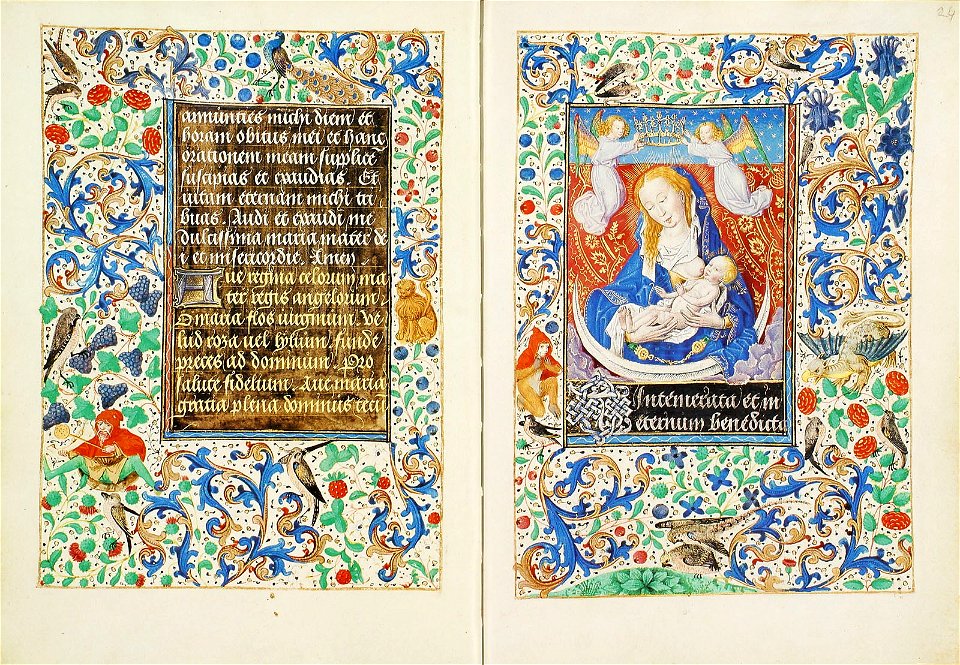 annuncies michi diem et
horam obitus mei et hanc
orationem meam supplice
suscipias et exaudias. Et
uitam eternam michi tri
buas. Audi et exaudi me
dulcissima maria mater de
i et misericordie. Amen
Aue regina celorum ma
ter regis angelorum,
O maria flos uirginum. Ve
lud roza uel lylium, funde
preces ad dominum. Pro
salute fidelium. Aue maria
gratia plena dominus tecū
24
O Intemerata et in
eternum benedicta